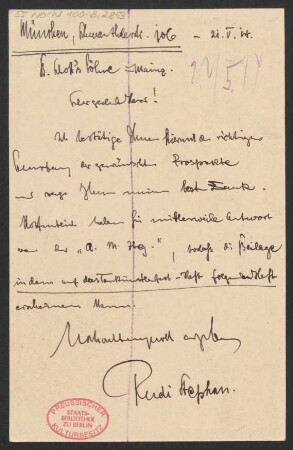 55 Nachl 100 B, 2853
München, Schwanthalerstr. 106 – 21. V. 14.
B. Schott's Söhne – Mainz.
22/5 14
Sehr geehrter Herr!
Ich bestätige Ihnen hiermit den richtigen
Empfang der gewünschten Prospekte
und sage Ihnen meinen besten Dank.
Hoffentlich haben Sie mittlerweile Antwort
von der „A. M. Ztg.", sodaß die Beilage
in dem auf das Tonkünstlerfest-Heft folgenden Heft
erscheinen kann.
Hochachtungsvoll ergeben
Rudi Stephan.
PREUSSISCHER
STAATS-
BIBLIOTHEK
ZU BERLIN
KULTURBESITZ